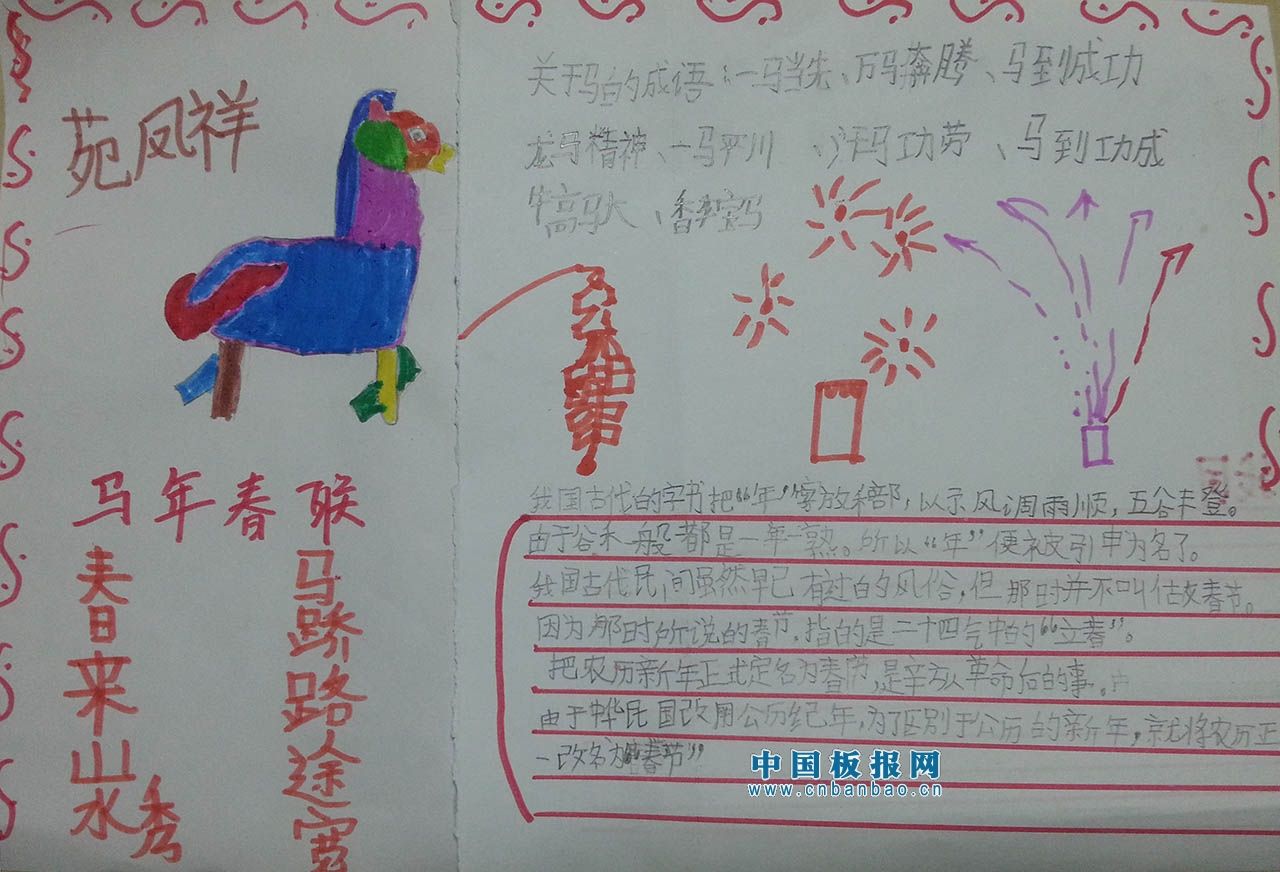 苑凤祥
马年春联
春来山水秀
马跻路途宽
关于马的成语：一马当先、万马奔腾、马到成功
龙马精神、一马平川、汗马功劳、马到功成
牛高马大、香车宝马
我国古代的字书把“年”字放禾部，以示风调雨顺，五谷丰登。
由于谷禾一般都是一年一熟。所以“年”便被引申为名了。
我国古代民间虽然早已有过的风俗，但那时并不叫春节。
因为那时所说的春节，指的是二十四气中的“立春”。
把农历新年正式定名为春节，是辛亥革命后的事。由
由于中华民国改用公历纪年，为了区别于公历的新年，就将农历正
一改名为“春节”
中国板报网
www.cnbanbao.cn